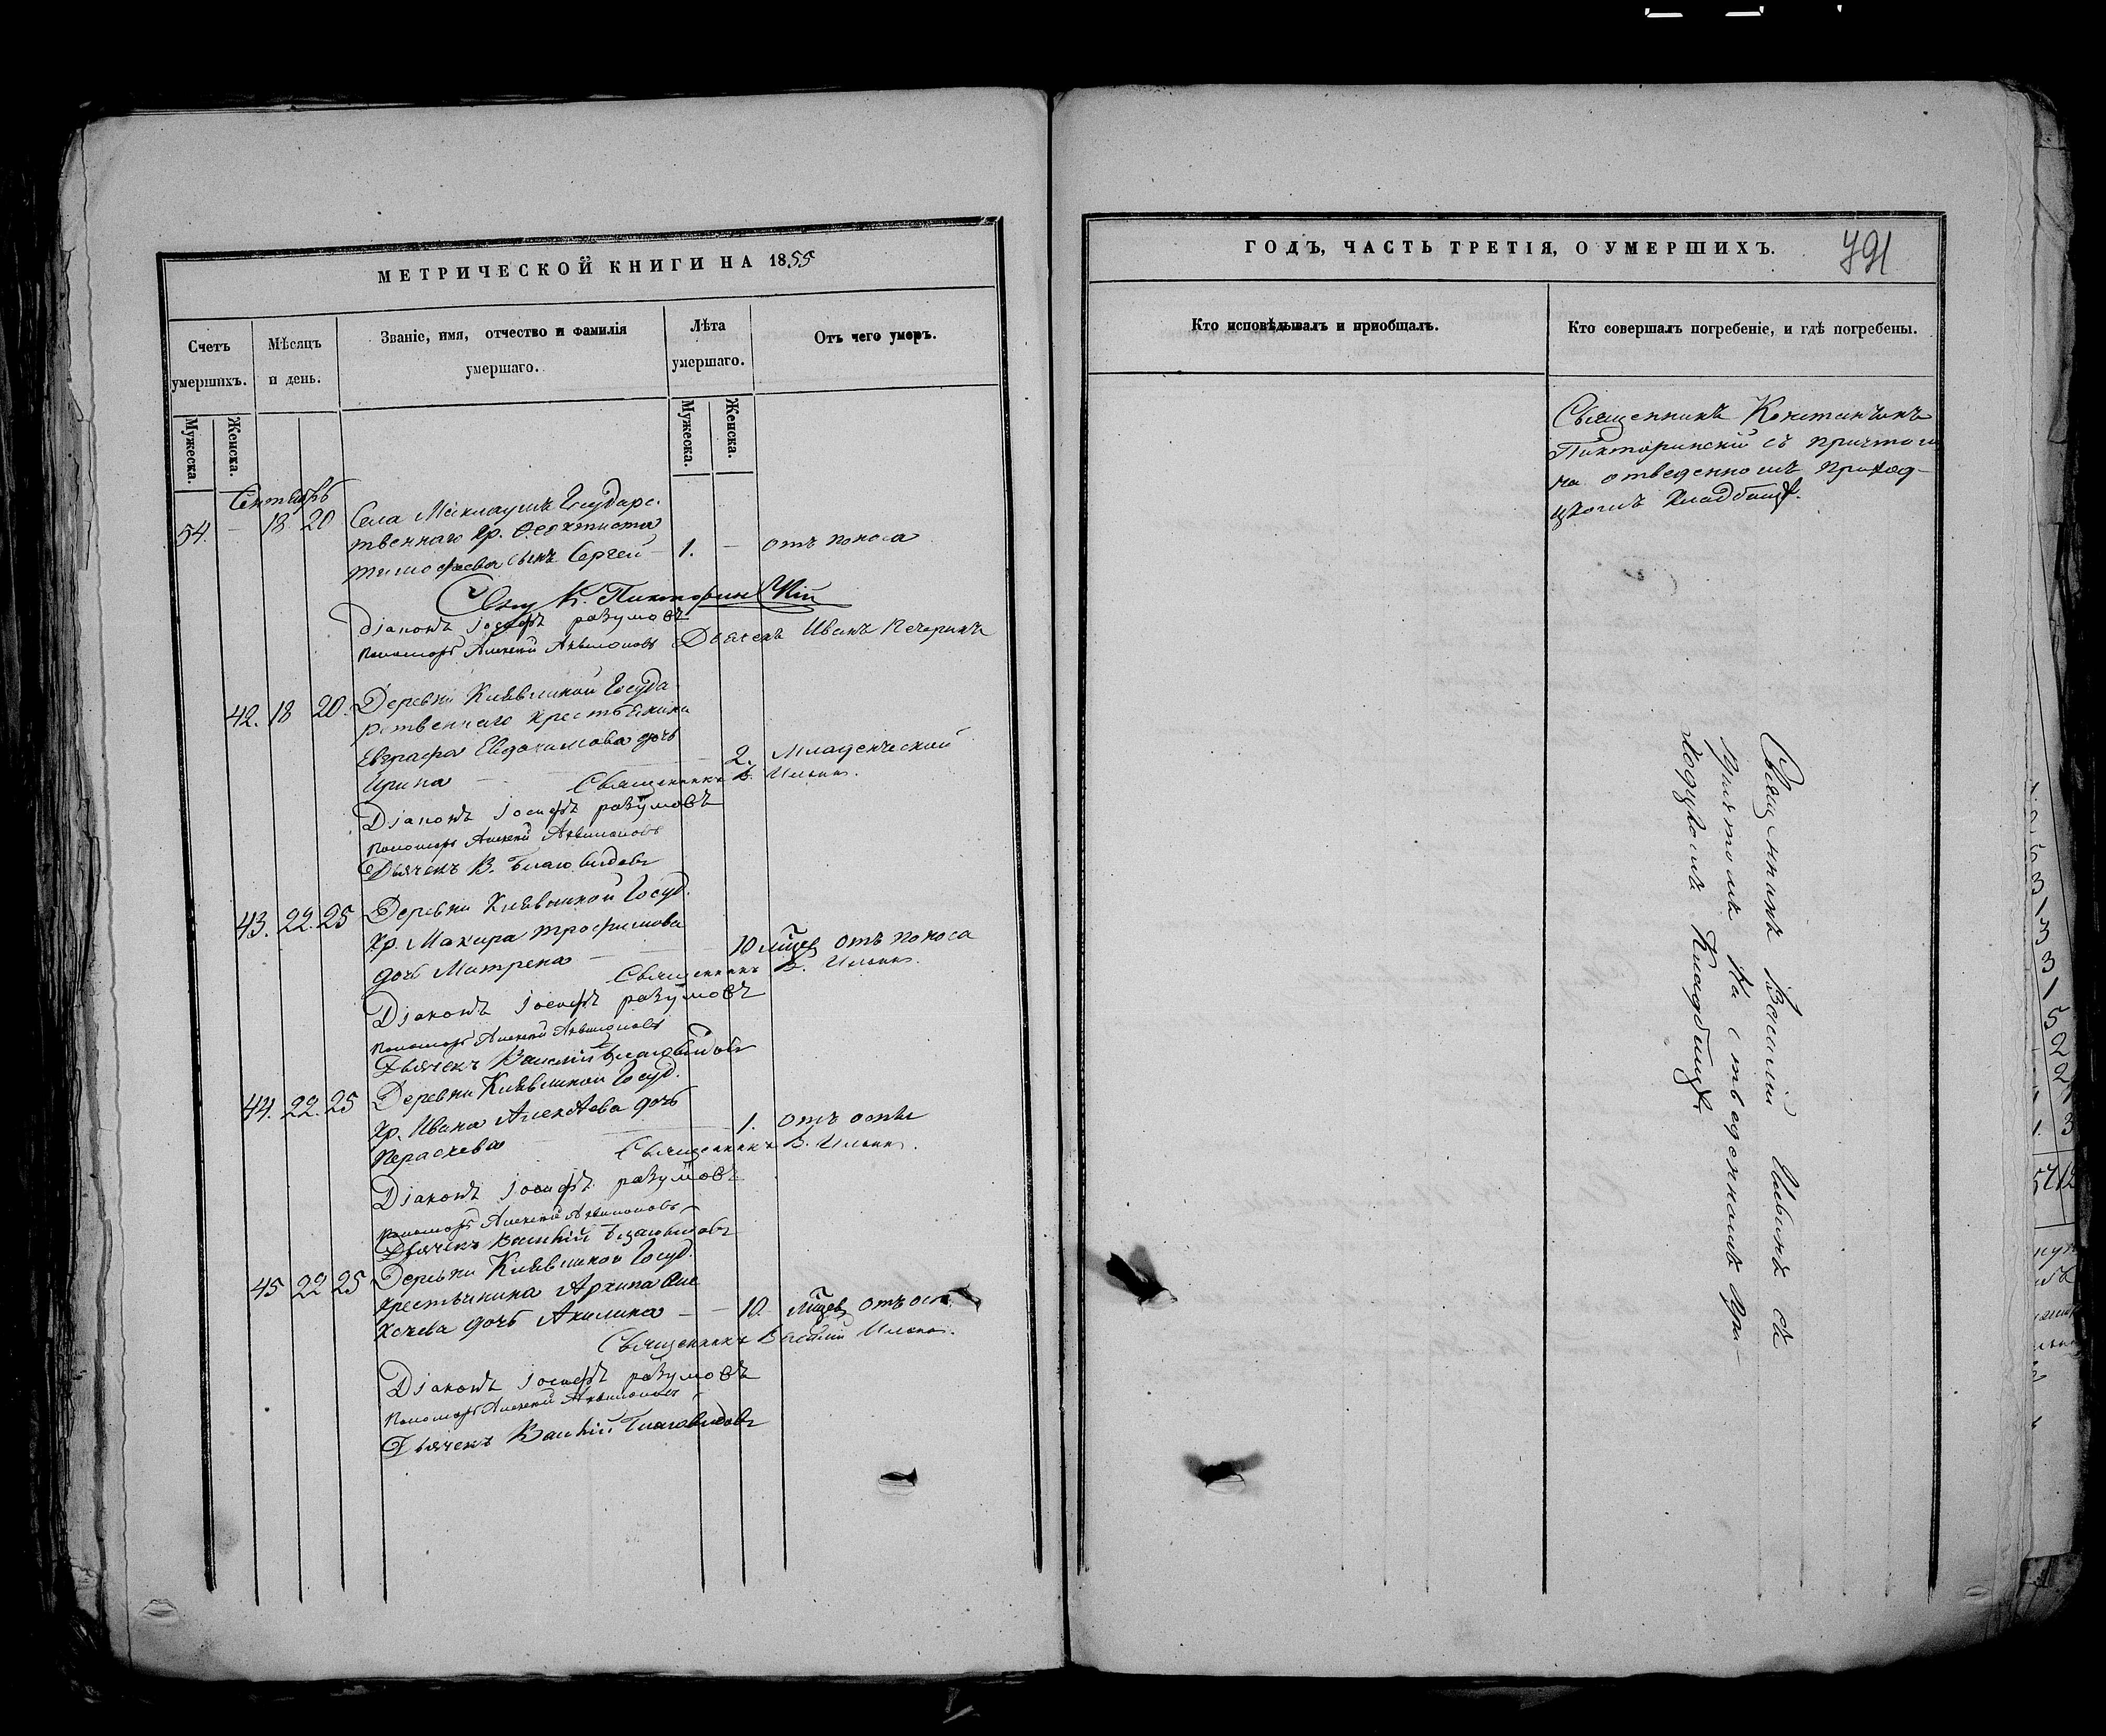 МЕТРИЧЕСКОЙ КНИГИ НА 1855
Счетъ умершихъ.
Мѣсяцъ и день.
Званіе, имя, отчество и фамилія умершаго.
Лѣта умершаго.
Отъ чего умеръ.
Мужеска.
Женска.
Мужеска.
Женска.
Сентябрь
54. — 18 20 Села Государс-
твеннаго кр. Феоктиста
Тимофеева сынъ Сергей — 1. — отъ поноса
Свящ К.
Діаконъ Іосифъ разумовъ
Пономарь Алексей Аквилоновъ Дьячекъ Иванъ Печеринъ
42. 18 20. Деревни Госуда-
рственнаго крестьянина
Евграфа Евдокимова дочь
Ирина — 2. Младенческой
Священникъ В. Ильинъ.
Діаконъ Іосифъ разумовъ
Пономарь Алексей Аквилоновъ
Дьячекъ В. Благовидовъ
43. 22. 25 Деревни Госуд.
кр. Макара Трофимова
дочь Матрена — 10 мѣсец отъ поноса
Священникъ В. Ильинъ.
Діаконъ Іосифъ разумовъ
Пономарь Алексей Аквилоновъ
Дьячекъ Василій Благовидовъ
44. 22. 25 Деревни Госуд.
кр. Ивана Алексеева дочь
Парасхева — 1. отъ оспы
Священникъ В. Ильинъ.
Діаконъ Іосифъ разумовъ
Пономарь Алексей Аквилоновъ
Дьячекъ Василій Благовидовъ
45 22 25 Деревни Госуд.
крестьянина Архипа
дочь Акилина — 10. мѣсец отъ
Священникъ Василій Ильинъ.
Діаконъ Іосифъ разумовъ
Пономарь Алексей Аквилоновъ
Дьячекъ Василій Благовидовъ
ГОДЪ, ЧАСТЬ ТРЕТІЯ, О УМЕРШИХЪ.
791
Кто исповѣдывалъ и пріобщалъ.
Кто совершалъ погребеніе, и гдѣ погребены.
Священникъ Констанинъ
съ причтомъ
на отведенномъ приход-
цкомъ кладбищѣ.
Священникъ Василій Ильинъ съ
Причтомъ На отведенномъ при-
ходцкомъ Кладбищѣ.